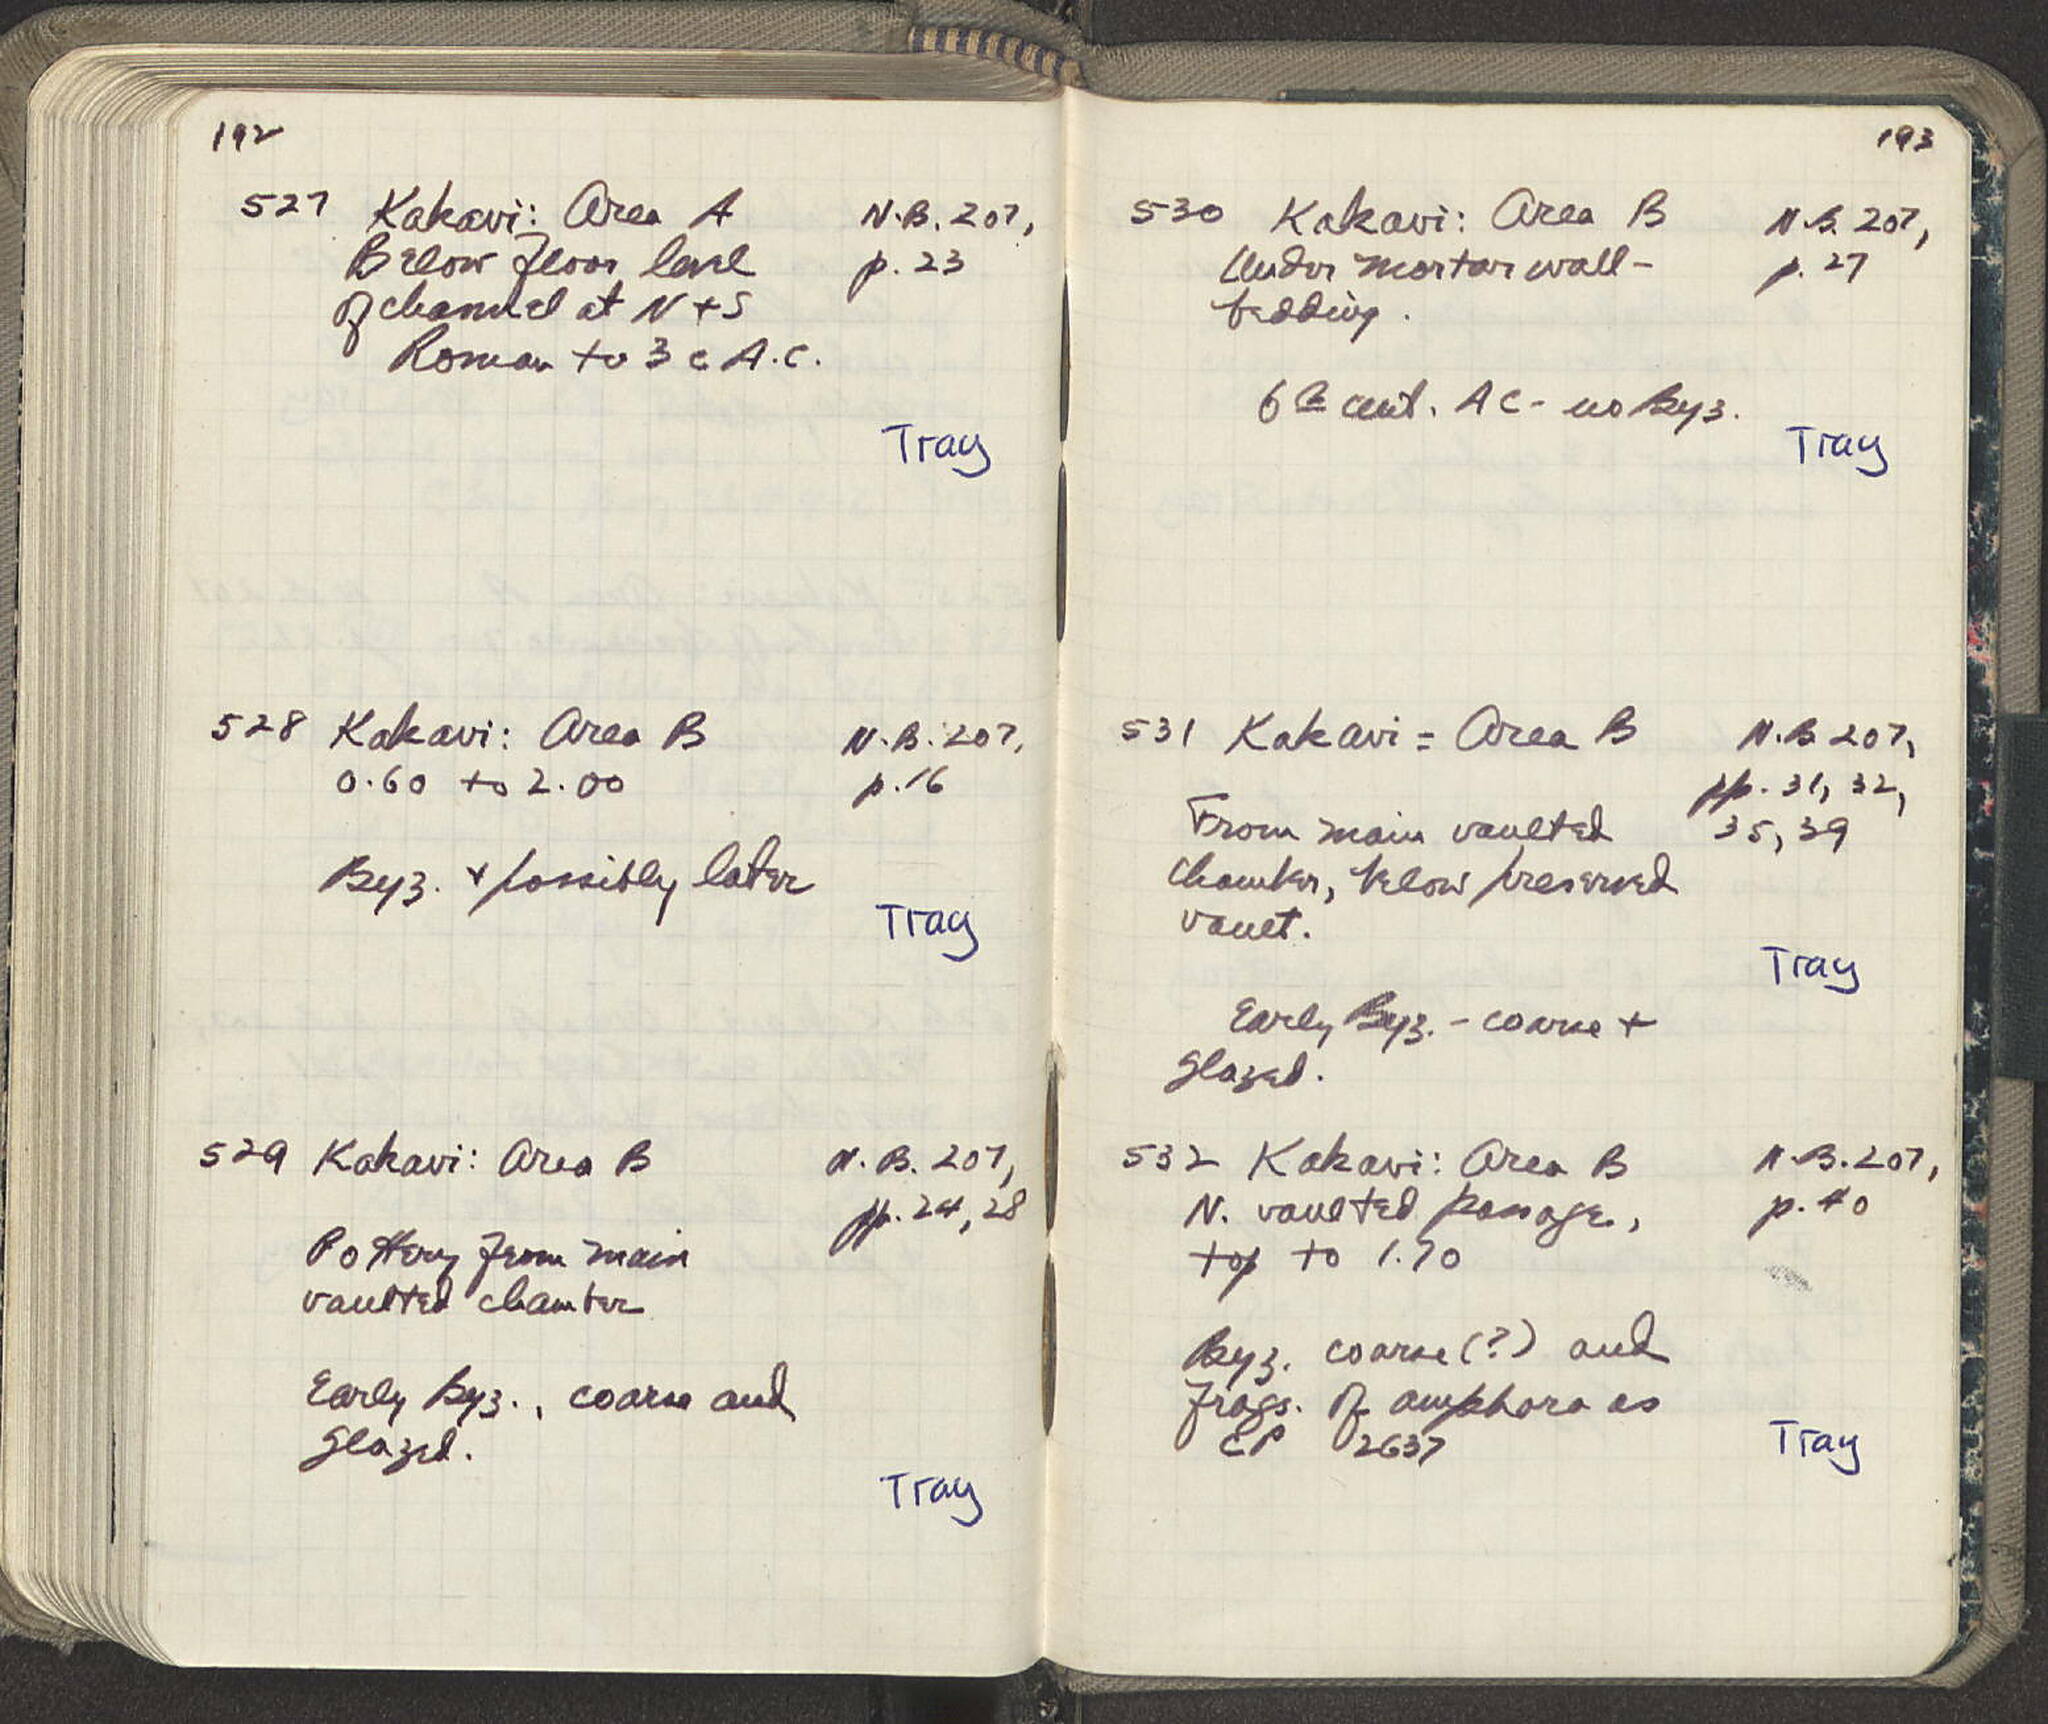 192
527 Kakavi: Area A N.B. 207,
Below floor level p. 23
of channel at N + S
Roman to 3 c A.C.
Tray
528 Kakavi: Area B N.B. 207,
0.60 to 2.00 p. 16
Byz. + possibly later
Tray
529 Kakavi: Area B N.B. 207,
pp. 24, 28
Pottery from main
vaulted chamber
Early Byz., coarse and
glazed.
Tray
193
530 Kakavi: Area B N.B. 207,
Under mortar wall- p. 27
bedding.
6 cent. AC - no Byz.
Tray
531 Kakavi: Area B N.B. 207,
pp. 31, 32,
From main vaulted 35, 39
chamber, below preserved
vault.
Tray
Early Byz. - coarse +
glazed.
532 Kakavi: Area B N.B. 207,
N. vaulted passage, p. 40
top to 1.70
Byz. coarse (?) and
frags. of amphora as
CP 2637
Tray